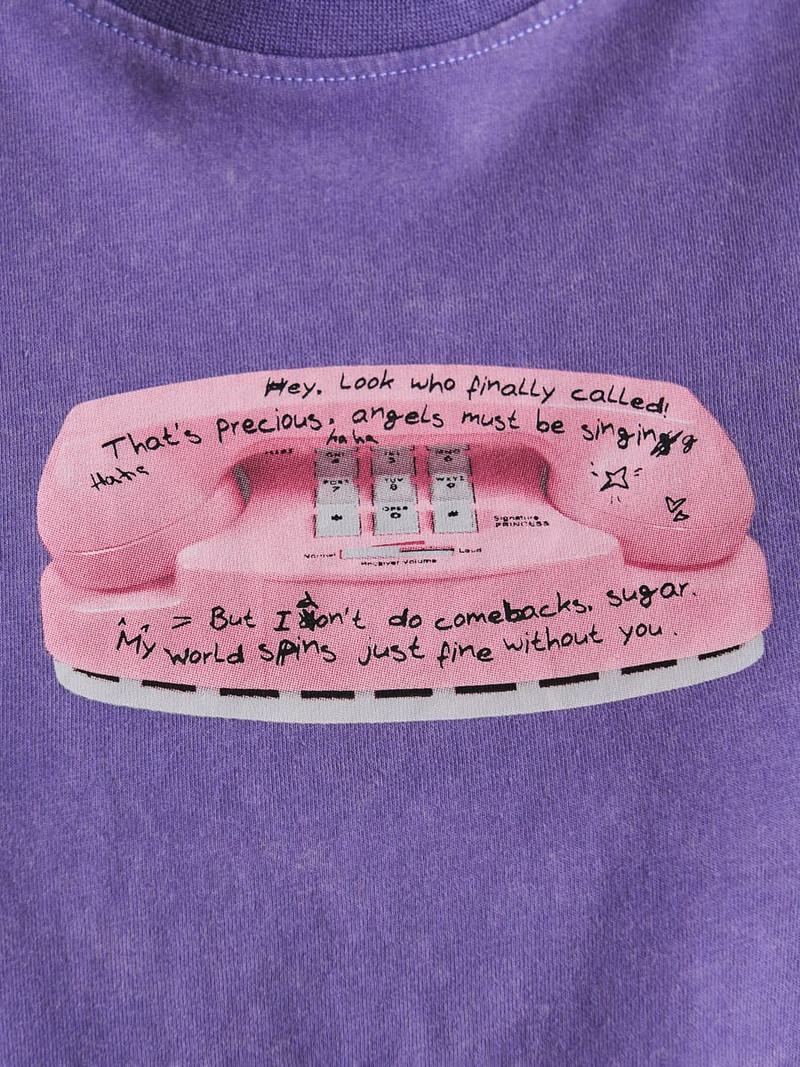 Hey. Look who finally called!
That's precious. angels must be singing
haha
Haha
PQRS TUV WXYZ
7 8 9
* OPER #
0
Signature
PRINCESS
Normal Loud
Receiver Volume
= But I don't do comebacks. sugar.
My world spins just fine without you.